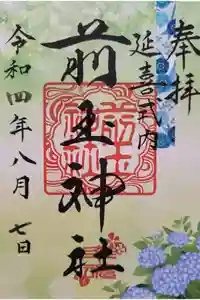 奉拝
延喜式内
前玉神社
令和四年八月七日